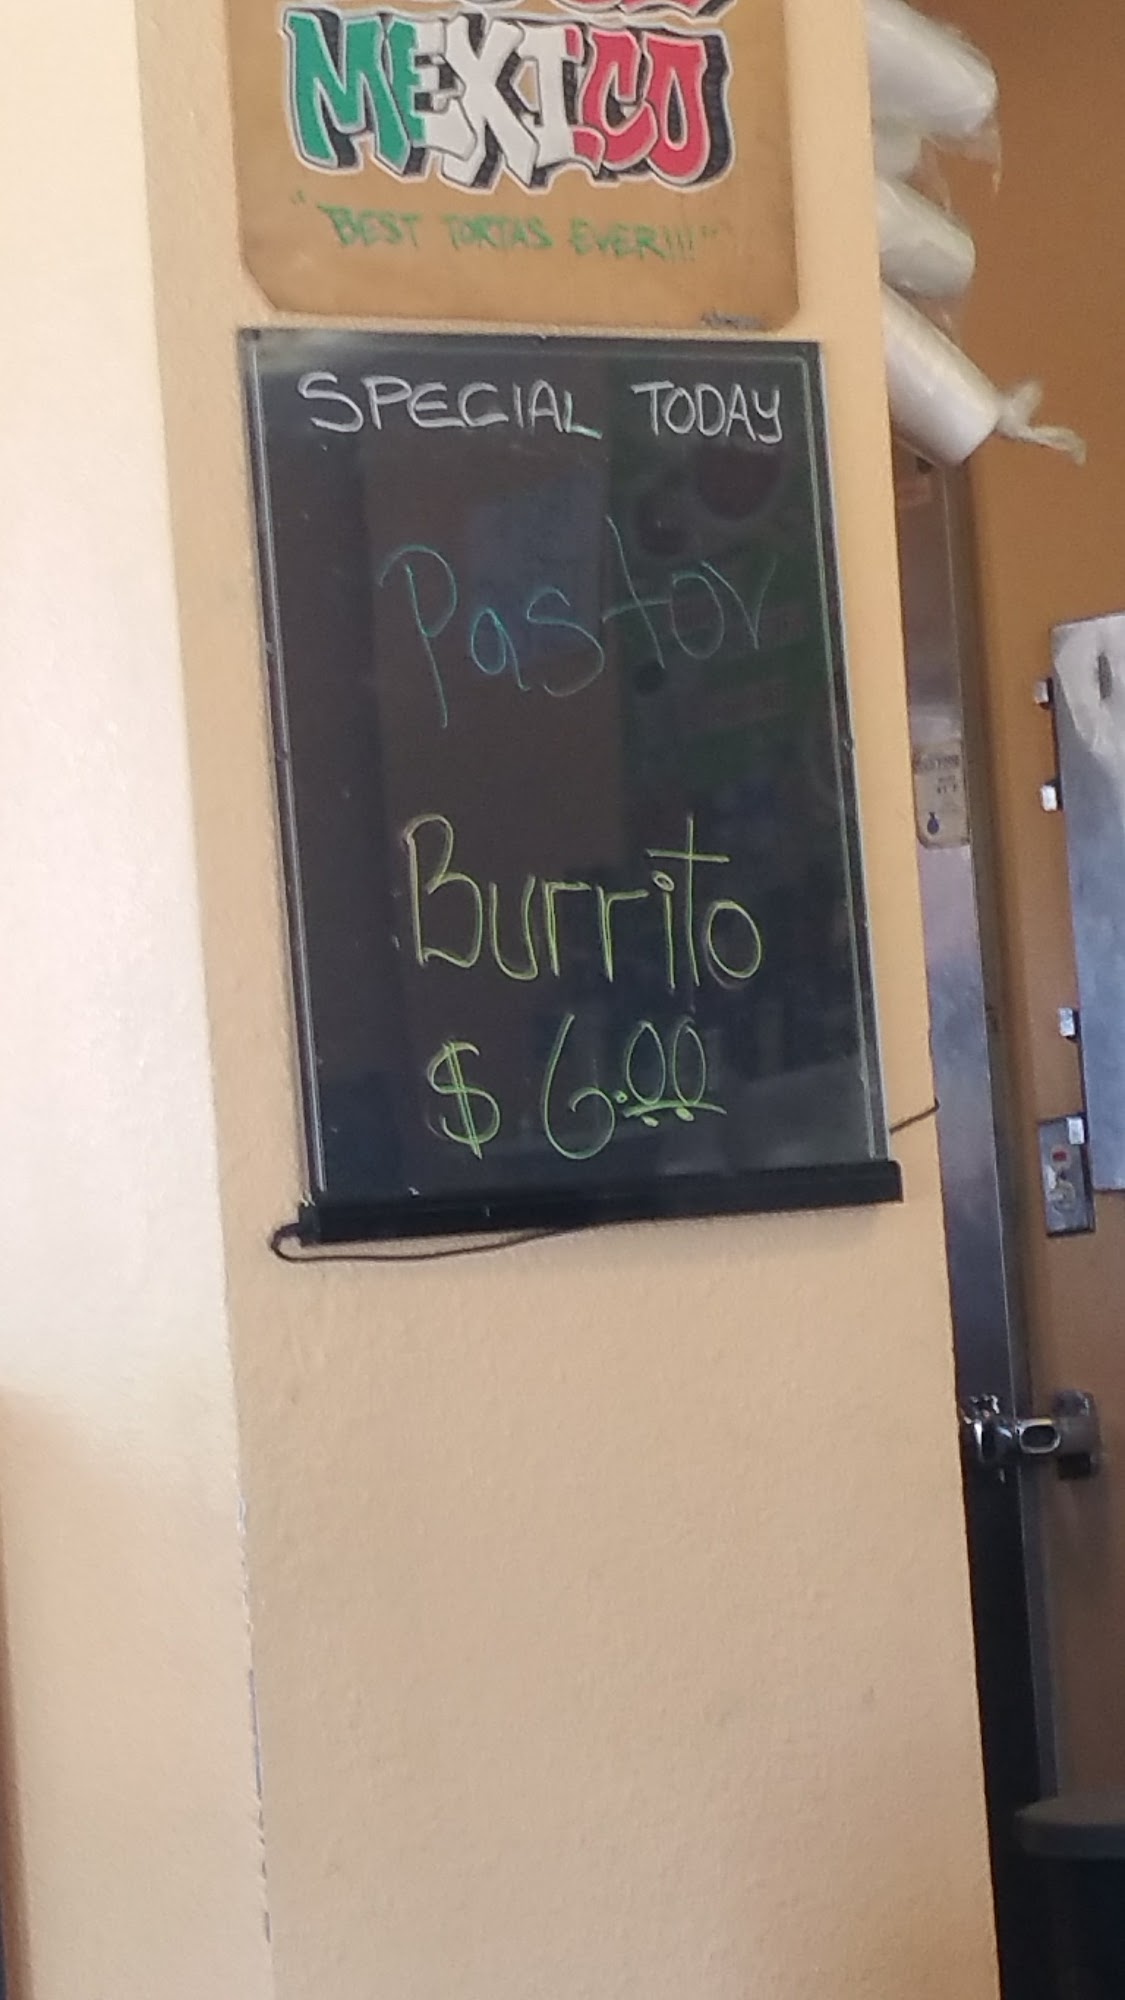 MEXICO
"BEST TORTAS EVER!!!"
SPECIAL TODAY
Pastor
Burrito
$6.00